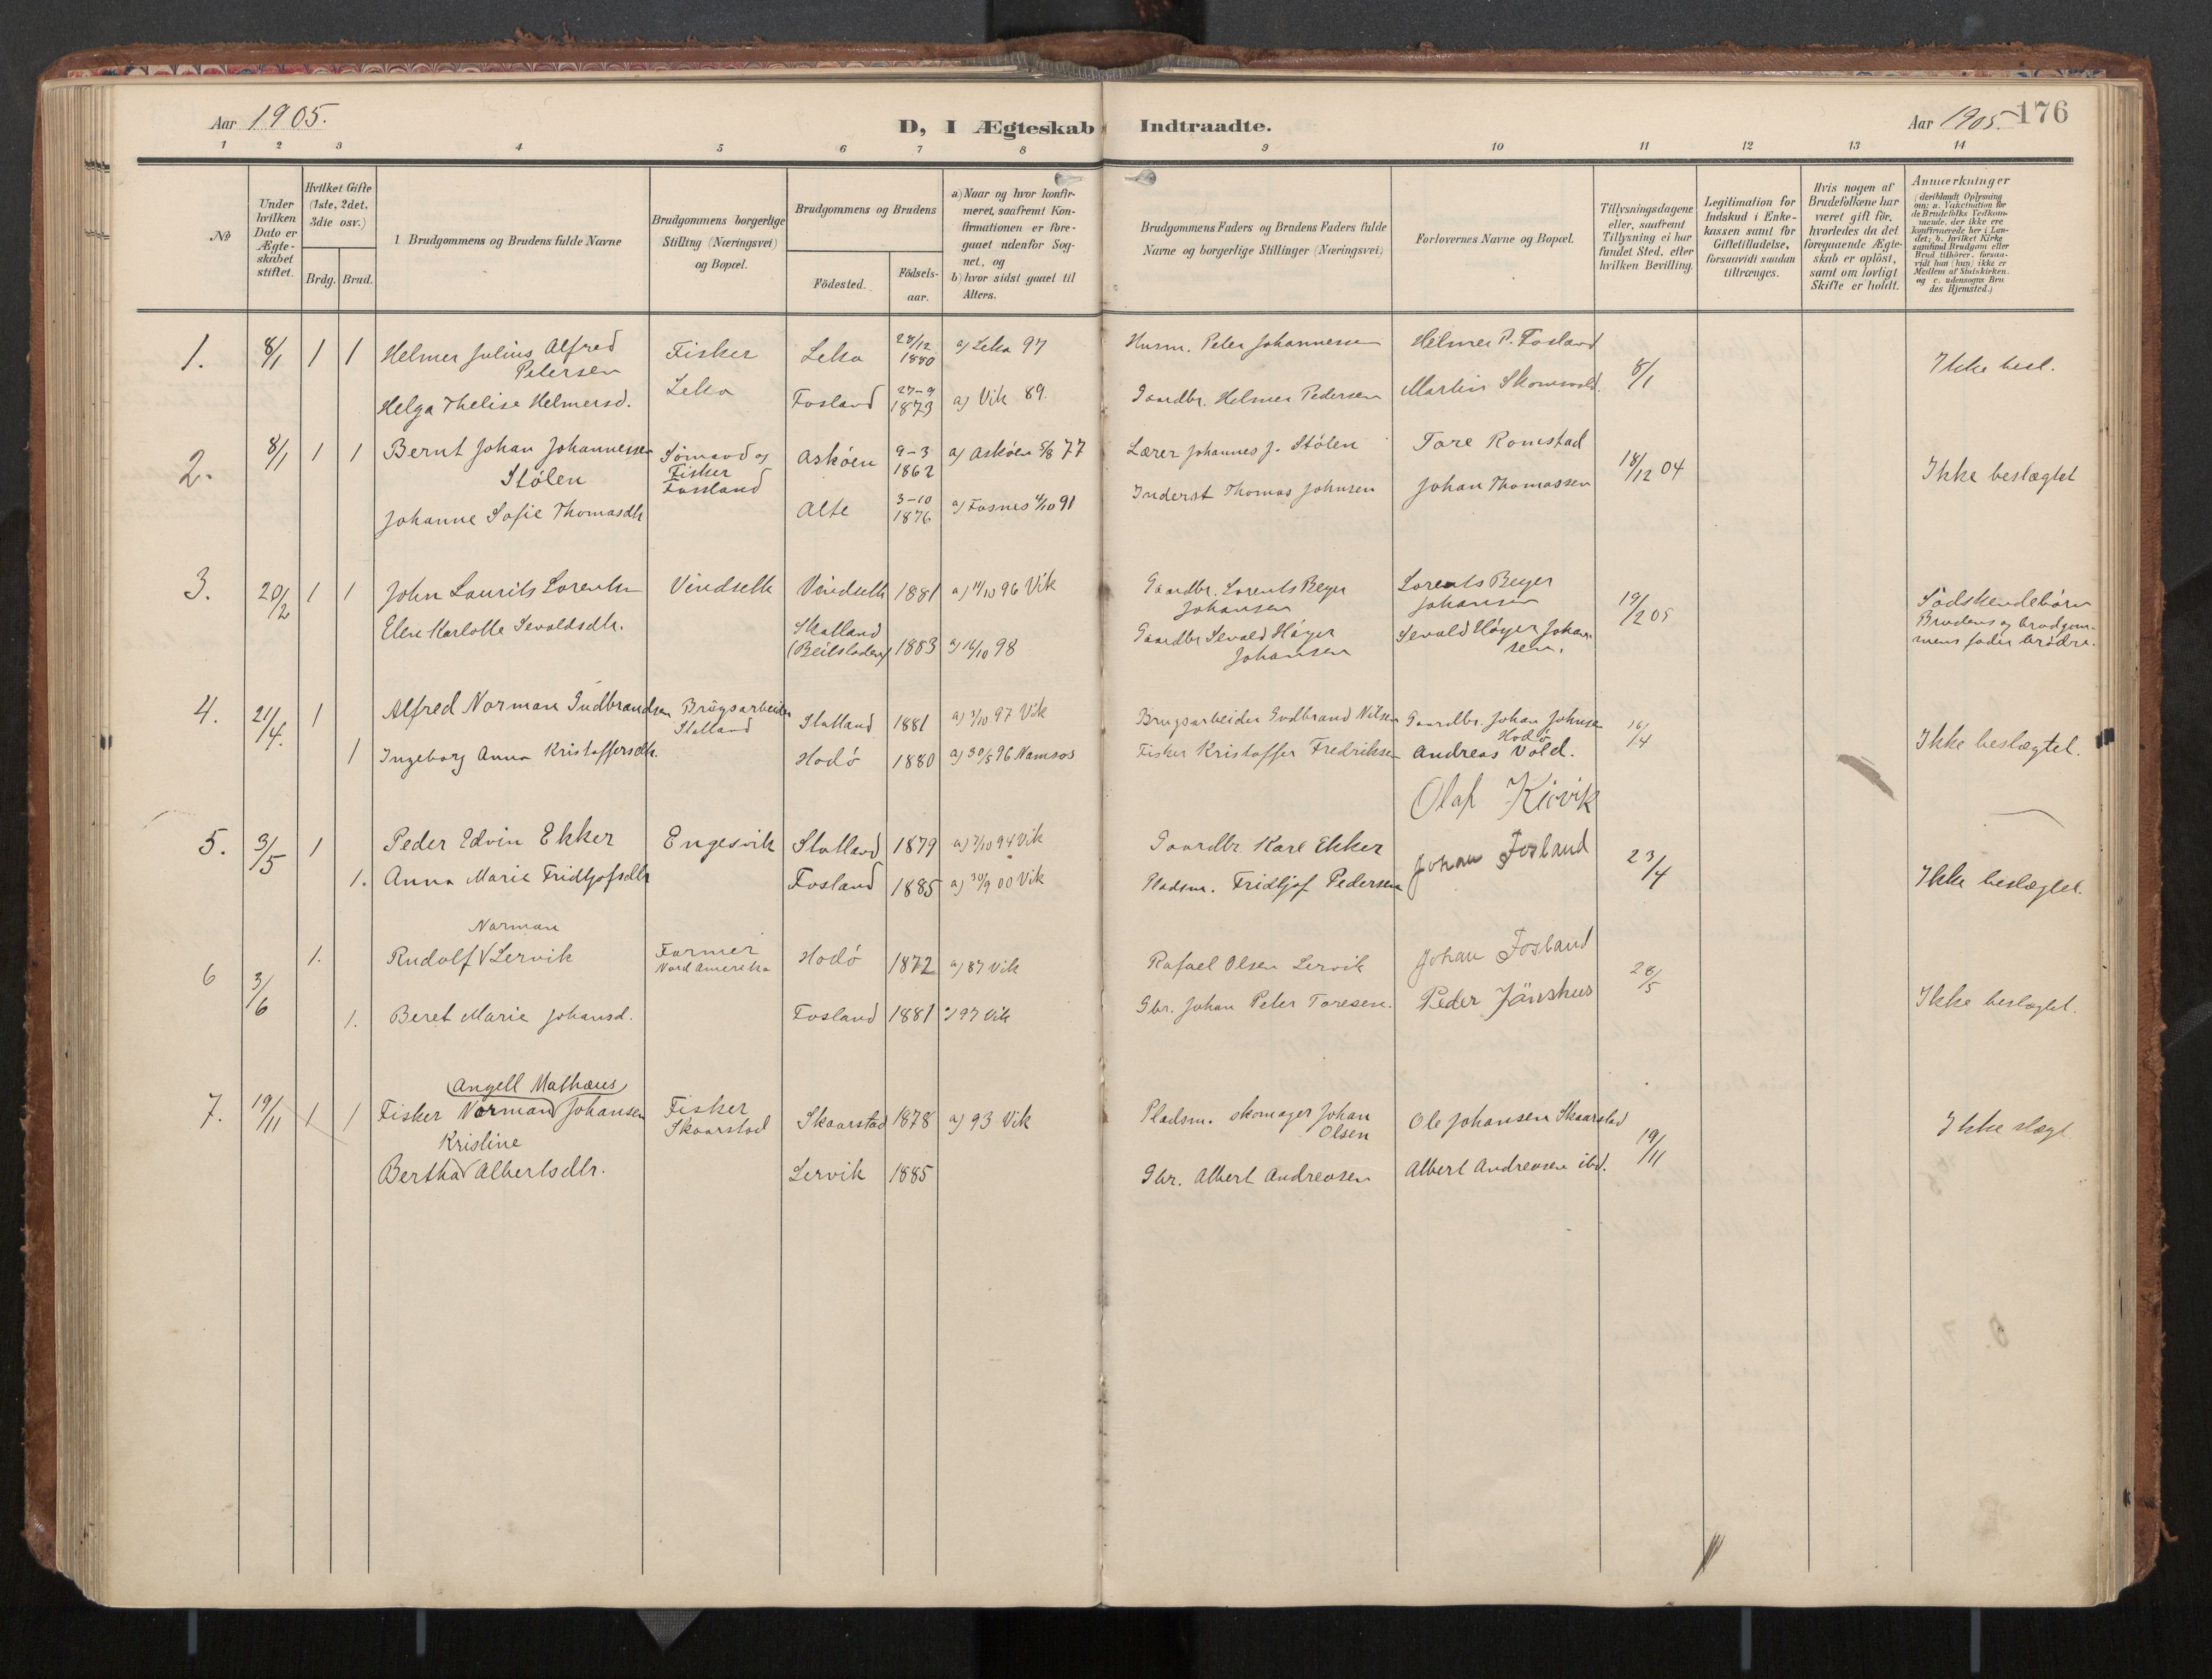 Aar 1905.
D, I Ægteskab Indtraadte.
Aar 1905. 176
1 2 3 4 5 6 7 8 9 10 11 12 13 14
No
Under hvilken Dato er Ægteskabet stiftet.
Hvilket Gifte (1ste, 2det, 3die osv.)
Brdg. Brud.
1. Brudgommens og Brudens fulde Navne
Brudgommens borgerlige Stilling (Næringsvei) og Bopæl.
Brudgommens og Brudens
Födested.
Födselsaar.
a) Naar og hvor konfirmeret, saafremt Konfirmationen er foregaaet udenfor Sognet, og
b) hvor sidst gaaet til Alters.
Brudgommens Faders og Brudens Faders fulde Navne og borgerlige Stillinger (Næringsvei)
Forlovernes Navne og Bopæl.
Tillysningsdagene eller, saafremt Tillysning ei har fundet Sted, efter hvilken Bevilling.
Legitimation for Indskud i Enkekassen samt for Giftetilladelse, forsaavidt saadan tiltrænges.
Hvis nogen af Brudefolkene har været gift för, hvorledes da det foregaaende Ægteskab er oplöst, samt om lovligt Skifte er holdt.
Anmerkninger
(deriblandt Oplysning om: a. Vakcination for de Brudefolks Vedkommende, der ikke ere konfirmerede her i Landet; b. hvilket Kirkesamfund Brudgom eller Brud tilhörer, forsaavidt han (hun) ikke er Medlem af Statskirken. og c. udensogns Brudes Hjemsted.)
1. 8/1 1 1 Helmer Julius Alfred Fisker Leka 28/12 a) Leka 97 Husm. Peter Johannessen Helmer P. Fosland Ikke besl.
Petersen 1880
Leka 8/1
Helga Thelise Helmersd. Fosland 27-9 a) Vik 89. Gaardbr. Helmer Pedersen Martin
1873
2. 8/1 1 1 Bernt Johan Johannessen Sömand og Askøen 9-3 a) Askøen 5/8 77 Lærer Johannes J. Stölen Tore Romstad 18/12 04 Ikke beslægtet
Stölen Fisker 1862
Fossland
Johanne Sofie Thomasdtr Alte 3-10 a) Fosnes 4/10 91 Inderst Thomas Johnsen Johan Thomassen
1876
3. 20/2 1 1 John Laurits Lorentsn Vindseth Vindseth 1881 a) 11/10 96 Vik Gaardbr. Lorents Beyer Lorents Beyer 19/2 05 Södskendebörn
Johansen Johansen Brudens og brudgom-
Elen Karlotte Sevaldsdtr. Skatland 1883 a) 16/10 98 Gaardbr Sevald Höyer Sevald Höyer Johan- mens fader brödre.
Johansen sen.
4. 21/4. 1 Alfred Norman Gudbrandsen Brugsarbeider Statland 1881 a) 3/10 97 Vik Brugsarbeider Gudbrand Nilsen Gaardbr. Johan Johnsen 16/4 Ikke beslægtet.
Statland Hodö
1 Ingeborg Anna Kristoffersdtr. Hodö 1880 a) 30/5 96 Namsos Fisker Kristoffer Fredriksen Andreas Vold.
Olaf
5. 3/5 1 Peder Edvin Ekker Engesvik Statland 1879 a) 7/10 94 Vik Gaardbr. Karl Ekker Johan Fosland 23/4 Ikke beslægtet.
1. Anna Marie Fridtjofsdtr Fosland 1885 a) 30/9 00 Vik Pladsm. Fridtjof Pedersen
Norman
6 3/6 1. Rudolf V Lervik Farmer Hodö 1872 a) 87 Vik Rafael Olsen Lervik Johan Fosland 28/5 Ikke beslægtet.
Nord Amerika
1. Beret Marie Johansd. Fosland 1881 a) 97 Vik Gbr. Johan Peter Toresen. Peder Jänshus
Angell Mathæus
7. 19/11 1 1 Fisker Norman Johansen Fisker Skaarstad 1878 a) 93 Vik Pladsm. skomager Johan Ole Johansen Skaarstad 19/11 Ikke slægt.
Skaarstad Olsen
Kristine
Bertha V Albertsdtr. Lervik 1885 Gbr. Albert Andreasen Albert Andreasen ibd.